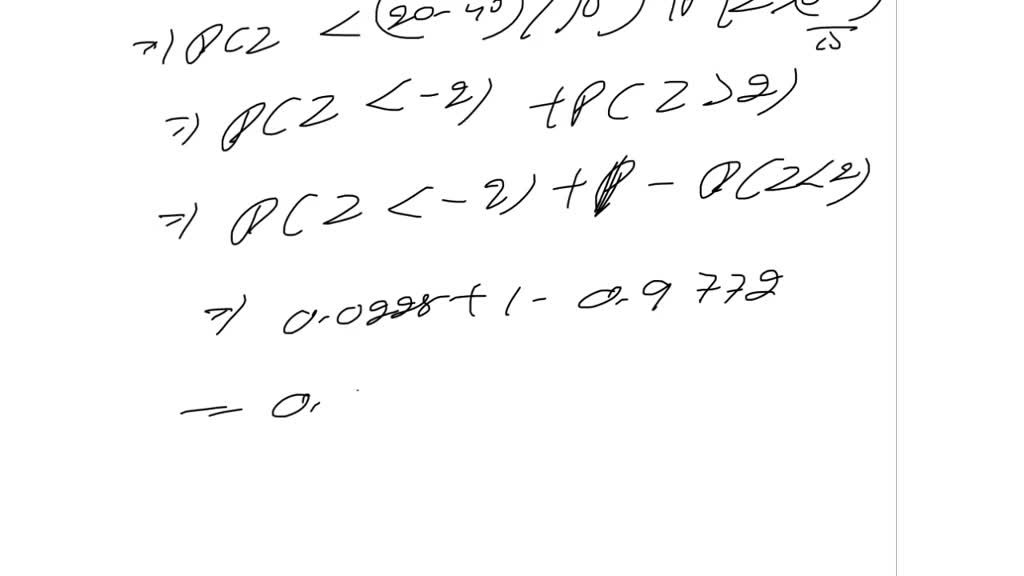 =) P(Z < (20-40)/10)
=) P(Z < -2) + P(Z > 2)
=) P(Z < -2) + - P(Z < 2)
=) 0.0228 + 1 - 0.9772
= 0.